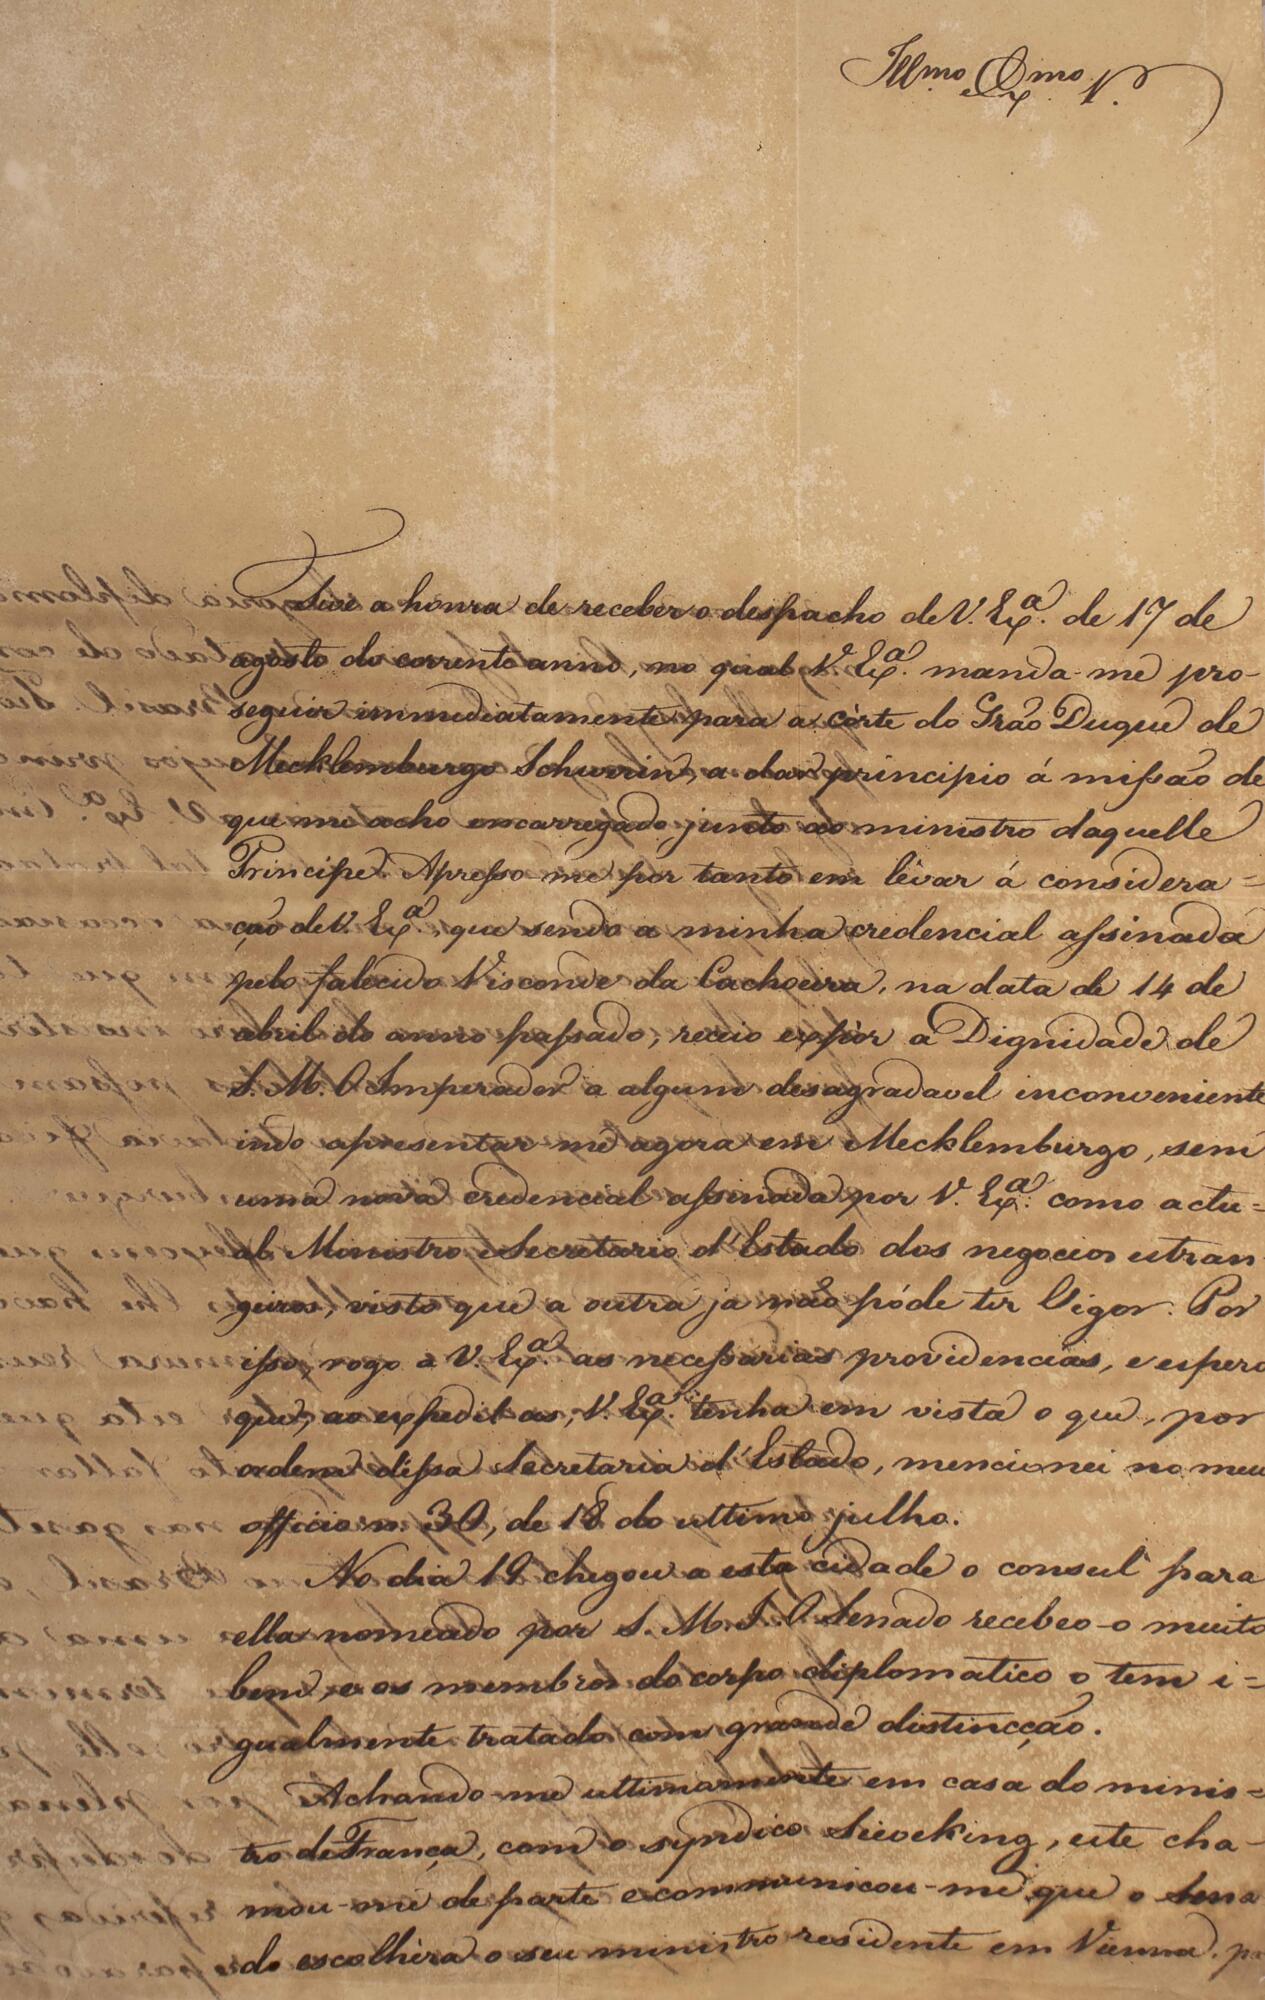 Illmo. Exmo. Sr.
Tive a honra de receber o despacho de V. Exª. de 17 de
agosto do corrente anno, no qual V. Exª. manda-me pro-
seguir immediatamente para a côrte do Grão Duque de
Mecklemburgo Schwrin, a dar principio á missão de
que me acho encarregado junto ao ministro daquelle
Principe. Apresso-me por tanto em levar á considera=
ção de V. Exª., que sendo a minha credencial assinada
pelo falecido Visconde da Cachoeira, na data de 14 de
abril do anno passado, receio expôr a Dignidade de
S. M. O Imperador a algum desagradavel inconveniente
indo apresentar-me agora em Mecklemburgo, sem
uma nova credencial assinada por V. Exª. como actu=
al Ministro e Secretario d'Estado dos negocios estran
geiros, visto que a outra ja não póde ter vigor. Por
isso, rogo a V. Exª. as necessarias providencias, e espero
que, ao expedil-as, V. Exª. tenha em vista o que, por
ordem dessa Secretaria d'Estado, mencionei no meu
officio n. 30, de 18 do ultimo julho.
No dia 19 chegou a esta cidade o consul para
ella nomeado por S. M. I. O Senado recebeo-o muito
bem, e os membros do corpo diplomatico o tem i=
gualmente tratado com grande distincção.
Achando-me ultimamente em casa do minis=
tro de França, com o syndico Sieveking, este cha-
mou-me de parte e communicou-me que o Sena
do escolhêra o seu ministro residente em Vienna, pa